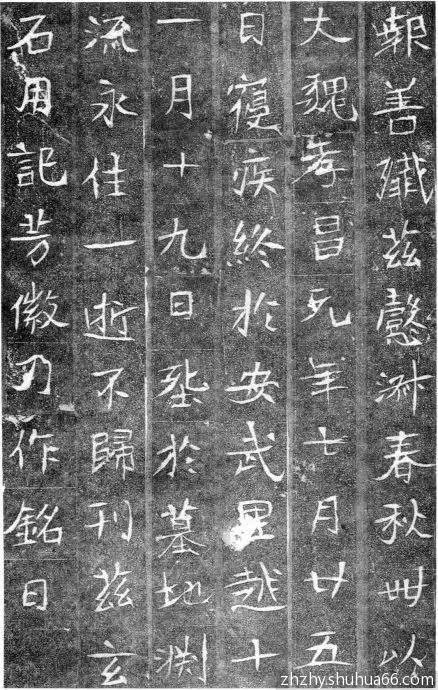 報善殲茲懿淑春秋卌以
大魏孝昌元年七月廿五
日寢疾終於安武里越十
一月十九日塟於墓地渊
流永住一逝不歸刊茲玄
石用記芳徽乃作銘曰
zhzhy.shuhua66.com